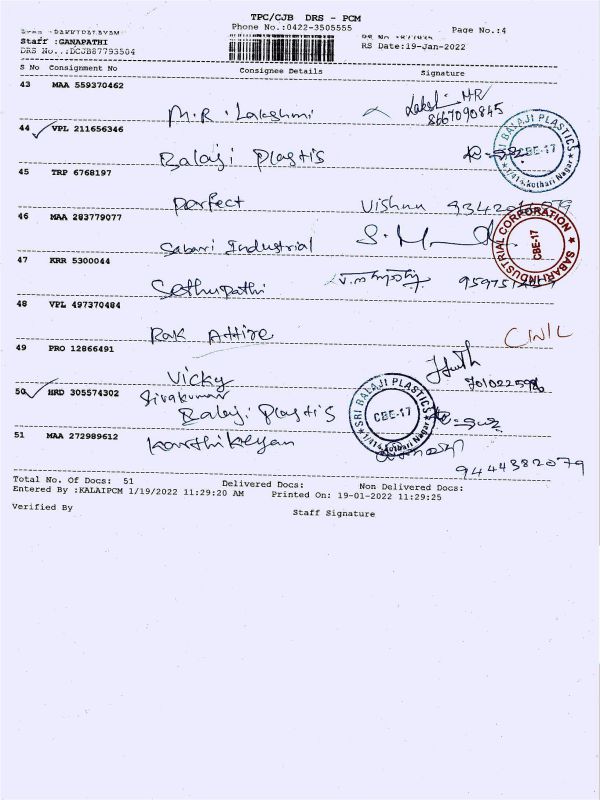 TPC/CJB DRS - PCM
Phone No.:0422-3505555 Page No.:4
Staff :GANAPATHI
DRS No..:DCJB87793504 RS Date:19-Jan-2022
S No Consignment No Consignee Details Signature
43 MAA 559370462
M.R. Lakshmi HR
8667090845
44 VPL 211656346
Balaji Plastis
SRI BALAJI PLASTICS CBE-17 7/414, Kothari Nagar
45 TRP 6768197
Perfect Vishnu
46 MAA 283779077
Sabari Industrial
SABARI INDUSTRIAL CORPORATION CBE-17
47 KRR 5300044
Sathupathi
48 VPL 497370484
RAK Attire
49 PRO 12866491
Vicky
50 HRD 305574302
Sivakumar
Balaji Plastis
SRI BALAJI PLASTICS CBE-17 7/414, Kothari Nagar
51 MAA 272989612
Karthikeyan
9444382079
Total No. Of Docs: 51 Delivered Docs: Non Delivered Docs:
Entered By :KALAIPCM 1/19/2022 11:29:20 AM Printed On: 19-01-2022 11:29:25
Verified By Staff Signature